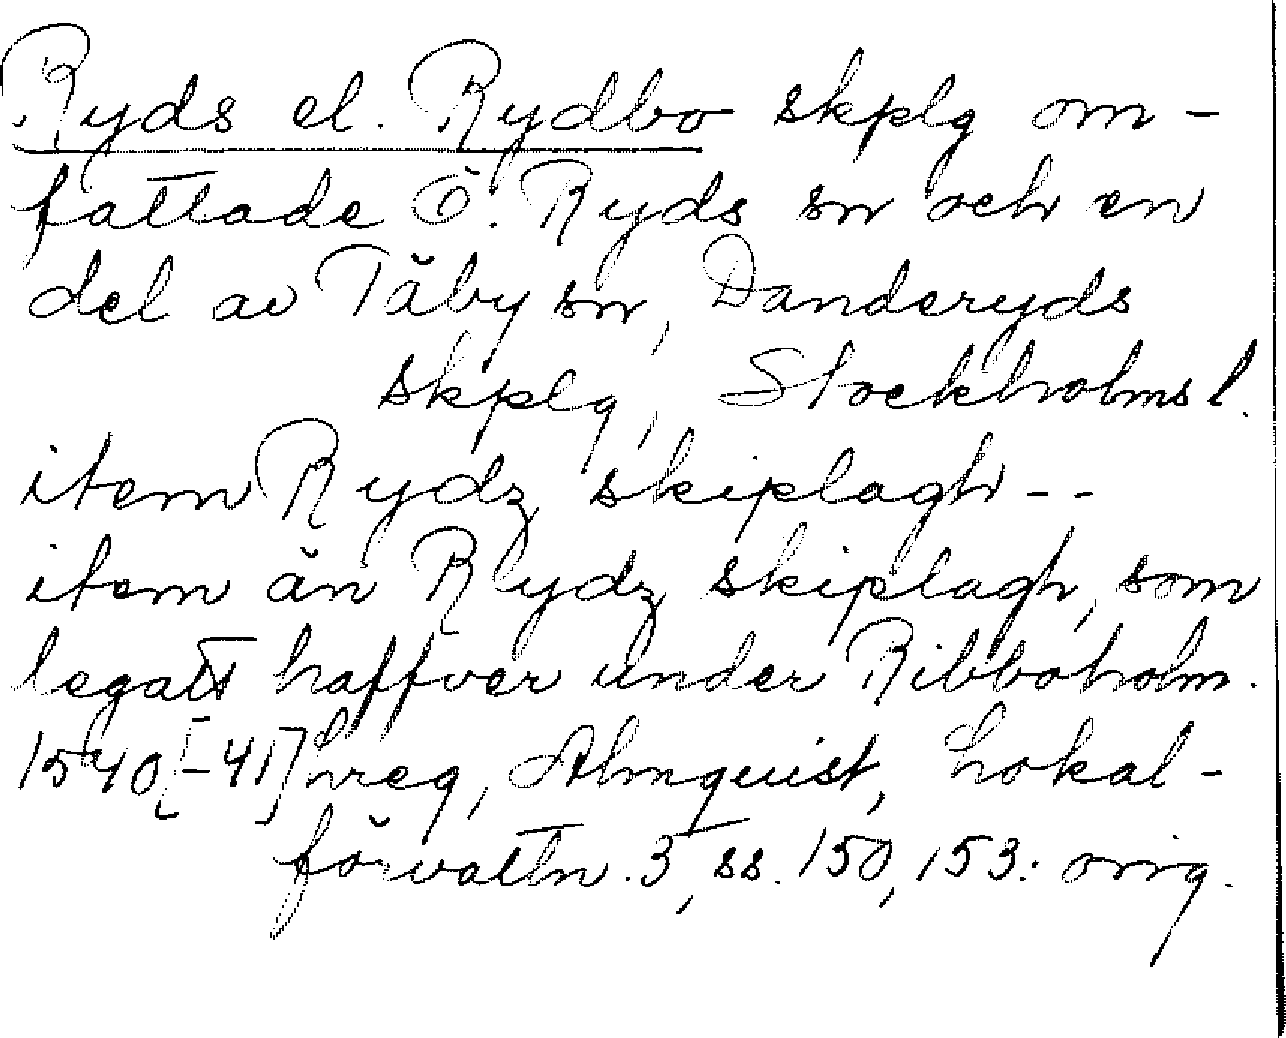 Ryds el. Rydbo skplg om-
fattade Ö. Ryds sn och en
del av Täby sn, Danderyds
skplg, Stockholms l.
item Rydz skiplagh - -
item än Rydz skiplagh, som
legatt haffver under Ribboholm.
1540[-41] hreg, Almquist, Lokal-
förvaltn. 3, ss. 150, 153: orig.